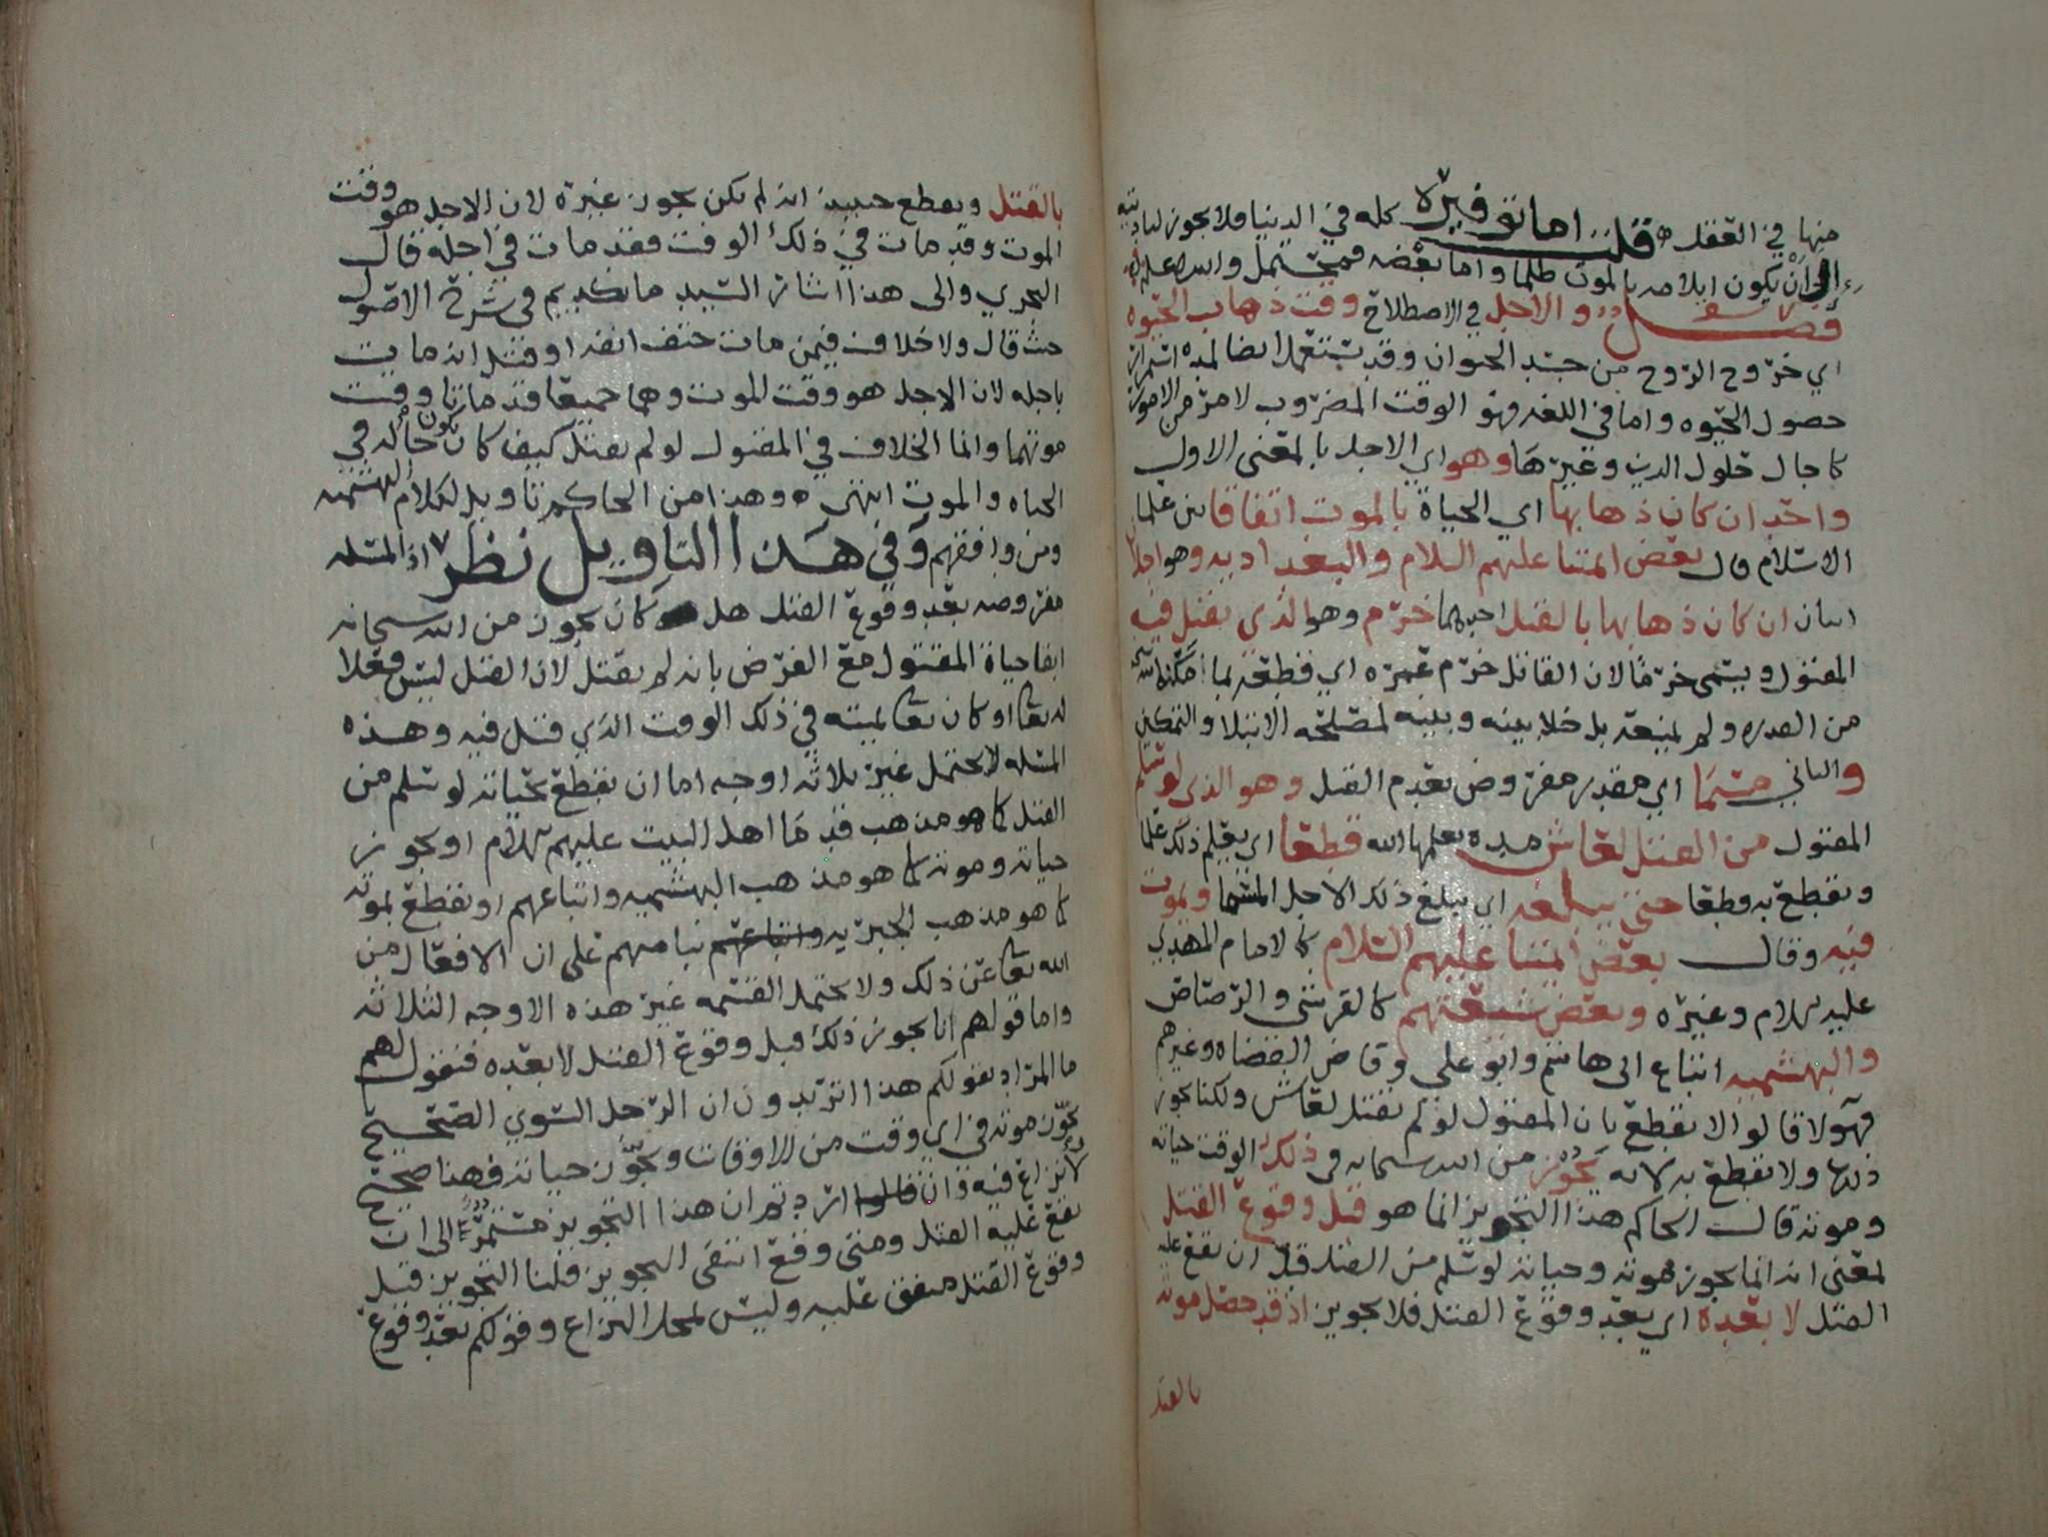 منها في العقل قلت اما توفيره كله في الدنيا فلا يجوز لتاديته
الى ان يكون ايلامه بالموت ظلما واما بعضه فمحتمل والله اعلم
فصل والاجل في الاصطلاح وقت ذهاب الحيوه
اي خروج الروح من جسد الحيوان وقد يستعمل ايضا لمده استمرار
حصول الحيوه واما في اللغه فهو الوقت المضروب لامر من الامور
كاجال حلول الدين وغيرها وهو اي الاجل بالمعنى الاول
واحد ان كان ذهابها اي الحياة بالموت اتفاقا بين علما
الاسلام قال بعض ائمتنا عليهم السلام والبغداديه وهو اجلان
اثنان ان كان ذهابها بالقتل احدهما خرم وهو الذي يقتل فيه
المقتول ويسمى خرما لان القاتل خرم عمره اي قطعه بما مكنه الله
من القدره ولم يمنعه بل خلا بينه وبينه لمصلحه الابتلا والتمكين
والثاني مسما اي مقدر مفروض بعدم القتل وهو الذي لو سلم
المقتول من القتل لعاش مده يعلمها الله قطعا اي يعلم ذلك علما
ونقطع به قطعا حتى يبلغه اي يبلغ ذلك الاجل المسما ويموت
فيه وقال بعض ائمتنا عليهم السلام كالامام المهدي
عليه السلام وغيره وبعض شيعتهم كالقرشي والرصاص
والبهشميه اتباع ابي هاشم وابو علي وقاض القضاه وغيرهم
فهولا قالوا لا نقطع بان المقتول لو لم يقتل لعاش ولكنا نجوز
ولا نقطع به لانه يجوز من الله سبحانه في ذلك الوقت حياته
وموته قال الحاكم هذا التجويز انما هو قبل وقوع القتل
لمعنى انه انما يجوز موته وحياته لو سلم من القتل قبل ان يقع عليه
القتل لا بعده اي بعد وقوع القتل فلا تجويز اذ قد حصل موته
بالقتل
بالقتل ونقطع حينيذ انه لم يكن يجوز غيره لان الاجل هو وقت
الموت وقد مات في ذلك الوقت فقد مات في اجله قال
النجري والى هذا اشار السيد مانكديم في شرح الاصول
حيث قال ولا خلاف فيمن مات حتف انفه او قتل انه مات
باجله لان الاجل هو وقت الموت وهما جميعا قد ماتا وقت
موتهما وانما الخلاف في المقتول لو لم يقتل كيف كان يكون حاله في
الحياه والموت انتهى وهذا من الحاكم تاويل لكلام البهشميه
ومن وافقهم وفي هذا التاويل نظر اذ المسئله
مفروضه بعد وقوع القتل هل كان يجوز من الله سبحانه
ابقا حياة المقتول مع الفرض بانه لم يقتل لان القتل ليس فعلا
له تعا او كان تعا يميته في ذلك الوقت الذي قتل فيه وهذه
المسئله لا يحتمل غير ثلاثه اوجه اما ان نقطع بحياته لو سلم من
القتل كما هو مذهب قدما اهل البيت عليهم السلام او يجوز
حياته وموته كما هو مذهب البهشميه واتباعهم او نقطع بموته
كما هو مذهب المجبريه واتباعهم بنا منهم على ان الافعال من
الله تعا عن ذلك ولا يحتمل القسمه غير هذه الاوجه الثلاثه
واما قولهم انا نجوز ذلك قبل وقوع القتل لا بعده فنقول لهم
ما المراد بقولكم هذا اتريدون ان الرجل السوي الصحيح
يجوز موته في اي وقت من الاوقات ويجوز حياته فهذا صحيح
لا نزاع فيه وان قالوا اردتم ان هذا التجويز مستمر الى ان
يقع عليه القتل ومتى وقع انتفى التجويز قلنا التجويز قبل
وقوع القتل متفق عليه وليس لمحل النزاع وقولكم بعد وقوع